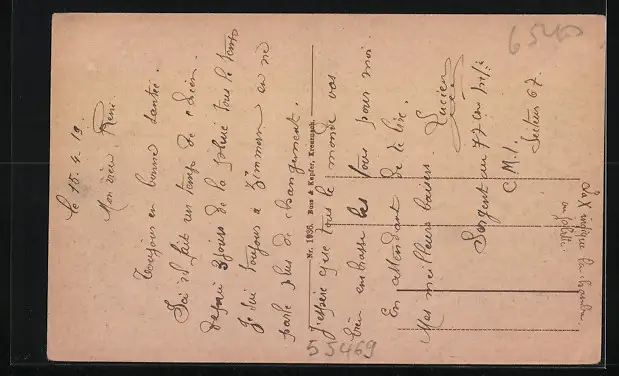 le 15.2.19.
Mon vieu René.
Toujours en bonne santée.
Ici il fait un temps de chien.
depuis 3 jours de la pluie tous le temps
Je sui toujours a Zimmern on ne
parle plus de changement.
J'espère que tous le monde vas
bien embrasse les tous pour moi.
En attendant de te lire.
Mes meilleurs baisers.
Lucien
Sergent au 77 em
C M 1.
Secteur 67.
Nr. 1936. Buss & Kupfer, Kreuznach.
La X indique la
65469
55469